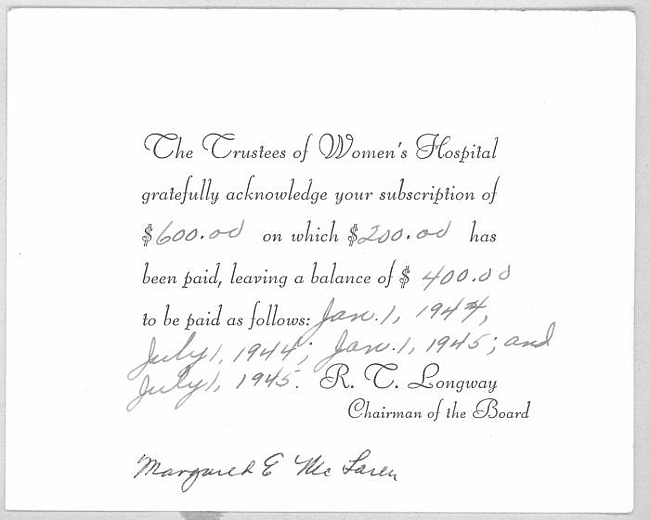 The Trustees of Women's Hospital
gratefully acknowledge your subscription of
$600.00 on which $200.00 has
been paid, leaving a balance of $ 400.00
to be paid as follows: Jan. 1, 1944,
July 1, 1944; Jan. 1, 1945; and
July 1, 1945. R. T. Longway
Chairman of the Board
Margaret E Mc Laren